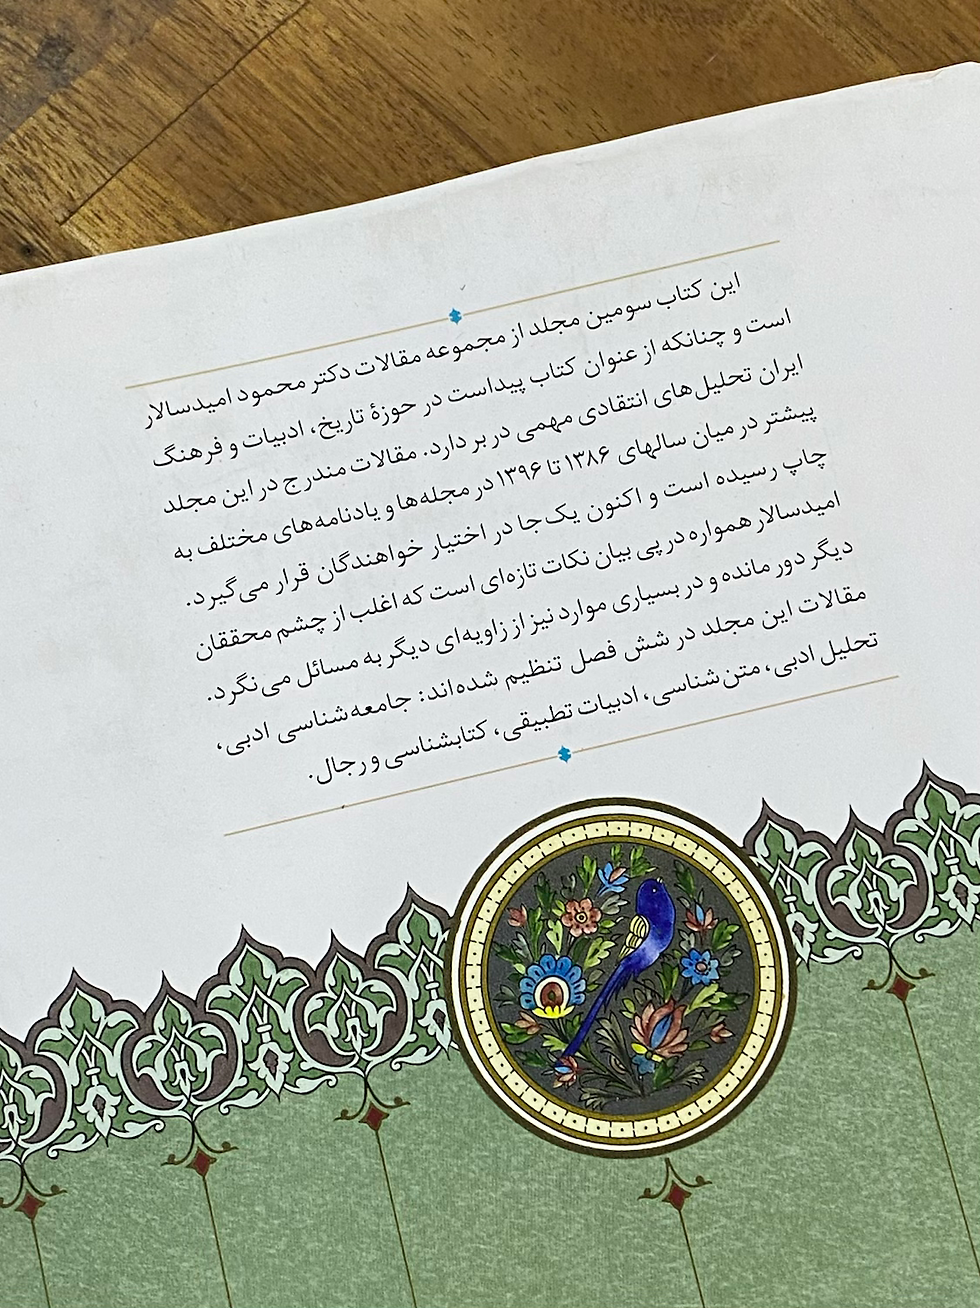 این کتاب سومین مجلد از مجموعه مقالات دکتر محمود امیدسالار
است و چنانکه از عنوان کتاب پیداست در حوزهٔ تاریخ، ادبیات و فرهنگ
ایران تحلیل‌های انتقادی مهمی در بر دارد. مقالات مندرج در این مجلد
پیشتر در میان سالهای ۱۳۸۶ تا ۱۳۹۶ در مجله‌ها و یادنامه‌های مختلف به
چاپ رسیده است و اکنون یک‌جا در اختیار خواهندگان قرار می‌گیرد.
امیدسالار همواره در پی بیان نکات تازه‌ای است که اغلب از چشم محققان
دیگر دور مانده و در بسیاری موارد نیز از زاویه‌ای دیگر به مسائل می‌نگرد.
مقالات این مجلد در شش فصل تنظیم شده‌اند: جامعه‌شناسی ادبی،
تحلیل ادبی، متن‌شناسی، ادبیات تطبیقی، کتابشناسی و رجال.